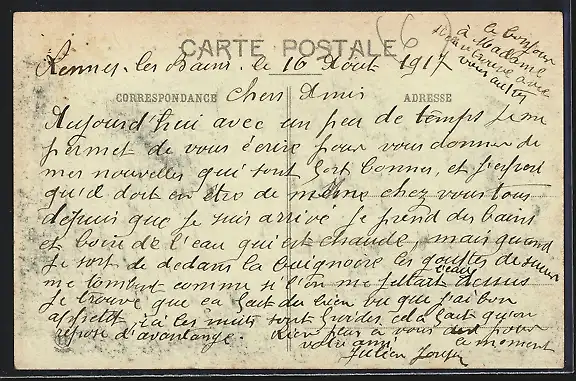 (6)
le bonjour
à Madame
vous autres
CARTE POSTALE
Rennes-les-Bains. le 16 Août 1917
CORRESPONDANCE
ADRESSE
Chers Amis
Aujourd'hui avec un peu de temps je me
permet de vous écrire pour vous donner de
mes nouvelles qui sont fort bonnes, et j'espère
qu'il doit en être de même chez vous tous
depuis que je suis arrivé je prend des bains
et boire de l'eau qui est chaude, mais quand
je sort de dedans la baignoire les gouttes de sueur
me tombent comme si l'on me jettait l'eau dessus
Je trouve que ça fait du bien vu que j'ai bon
appetit ici les nuits sont froides cela fait qu'on
repose d'avantage. Rien plus à vous pour
le moment
votre ami
Julien